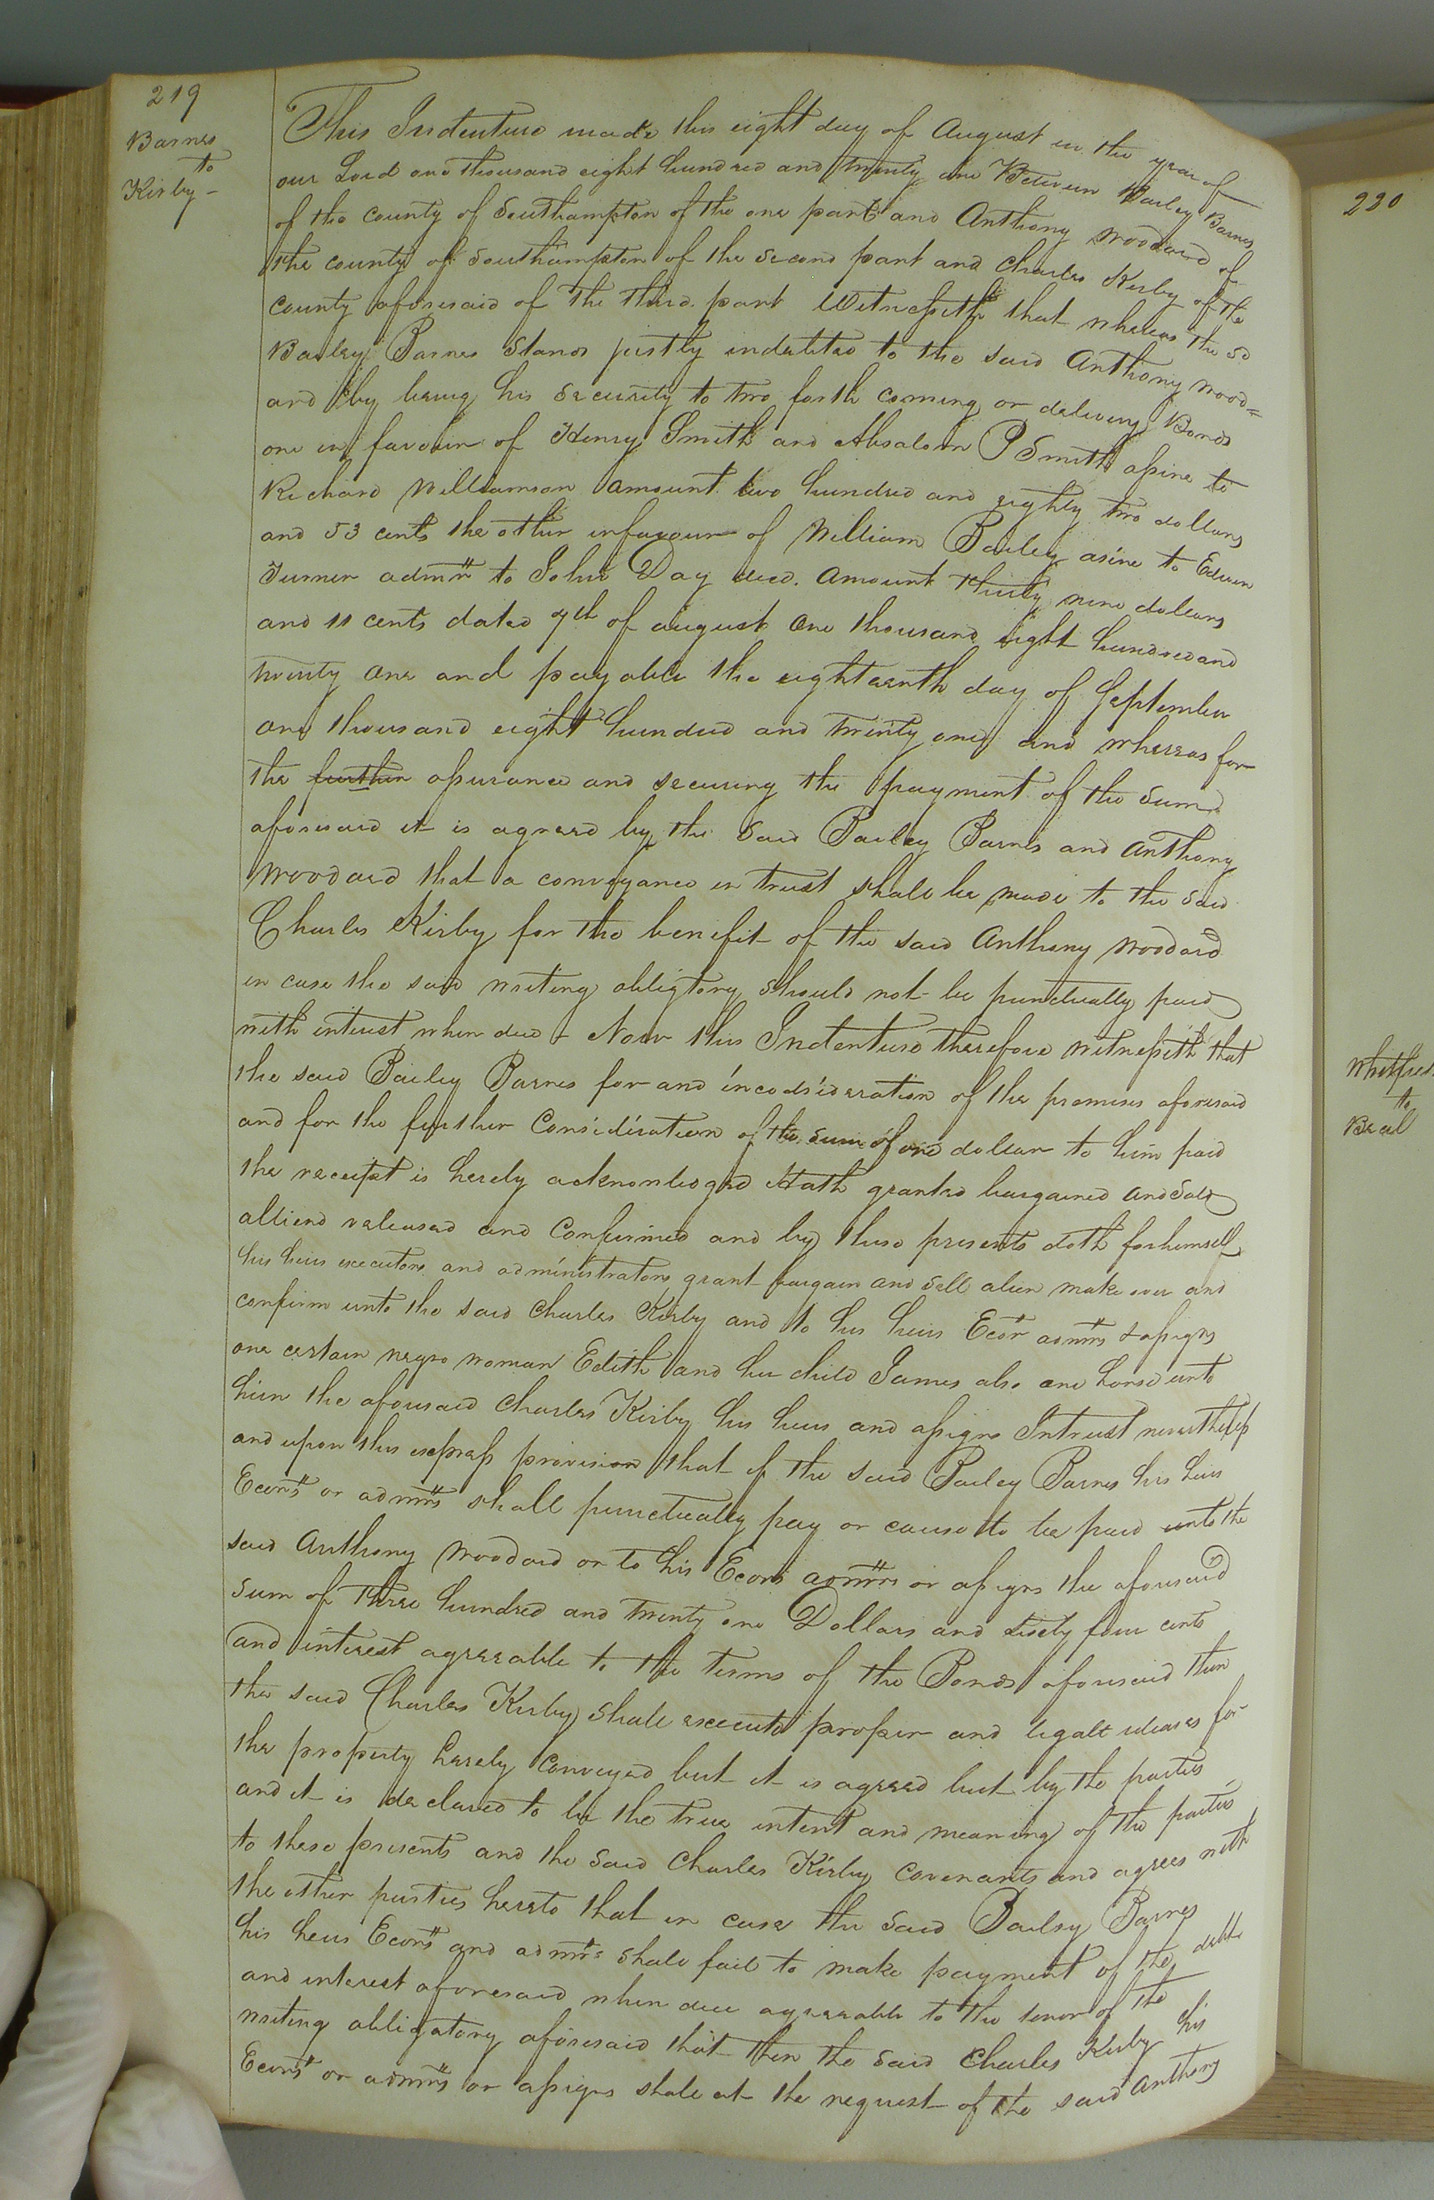 219
Barnes
to
Kirby -
This Indenture made this eight day of August in the year of
our Lord one thousand eight hundred and twenty one Between Bailey Barnes
of the county of Southampton of the one part and Anthony Woodard of
the county of Southampton of the second part and Charles Kirby of the
county aforesaid of the third part Witnesseth that whereas the sd
Bailey Barnes Stands justly indebted to the said Anthony Wood=
ard by being his security to two forth coming or delivery Bonds
one in favour of Henry Smith and Absalom P Smith assine to
Richard Williamson amount two hundred and eighty two dollars
and 53 cents the other infavour of William Bailey asine to Edwin
Turner admr to John Day decd. amount thirty nine dollars
and 11 cents dated 7th of august One thousand eight hundred and
twenty one and payable the eighteenth day of September
one thousand eight hundred and twenty one and whereas for
the further assurance and securing the payment of the sums
aforesaid it is agreed by the said Bailey Barnes and Anthony
Woodard that a conveyance in trust shall be made to the said
Charles Kirby for the benefit of the said Anthony Woodard
in case the said writing obligtory should not be punctually paid
with interest when due - Now this Indenture therefore witnesseth that
the said Bailey Barnes for and incodsideration of the premises aforesaid
and for the further Consideration of the sum of one dollar to him paid
the receipt is hereby acknowledged Hath granted bargained and sold
alliend released and Confirmed and by these presents doth for himself
his heirs executors and administrators grant bargain and sell alien make over and
confirm unto the said Charles Kirby and to his heirs Ecor admrs & assigns
one certain negro woman Edith and her child James also one horse unto
him the aforesaid Charles Kirby his heirs and assigns Intrust nevertheless
and upon this express provision that if the said Bailey Barnes his heirs
Ecors or admrs shall punctually pay or cause to be paid unto the
said Anthony Woodard or to his Ecors admrs or assigns the aforesaid
sum of three hundred and twenty one Dollars and sixty four cents
and interest agreeable to the terms of the Bonds aforesaid then
the said Charles Kirby shall execute proper and legall releases for
the property hereby conveyed but it is agreed but by the parties
and it is declared to be the true intent and meaning of the parties
to these presents and the said Charles Kirby covenants and agrees with
the other parties hereto that in case the said Bailey Barnes
his heirs Ecors and admrs shall fail to make payment of the debt
and interest aforesaid when due agreeable to the tenor of the
writing obligatory aforesaid that then the said Charles Kirby his
Ecors or admrs or assigns shall at the request of the said Anthony
220
to
Beal